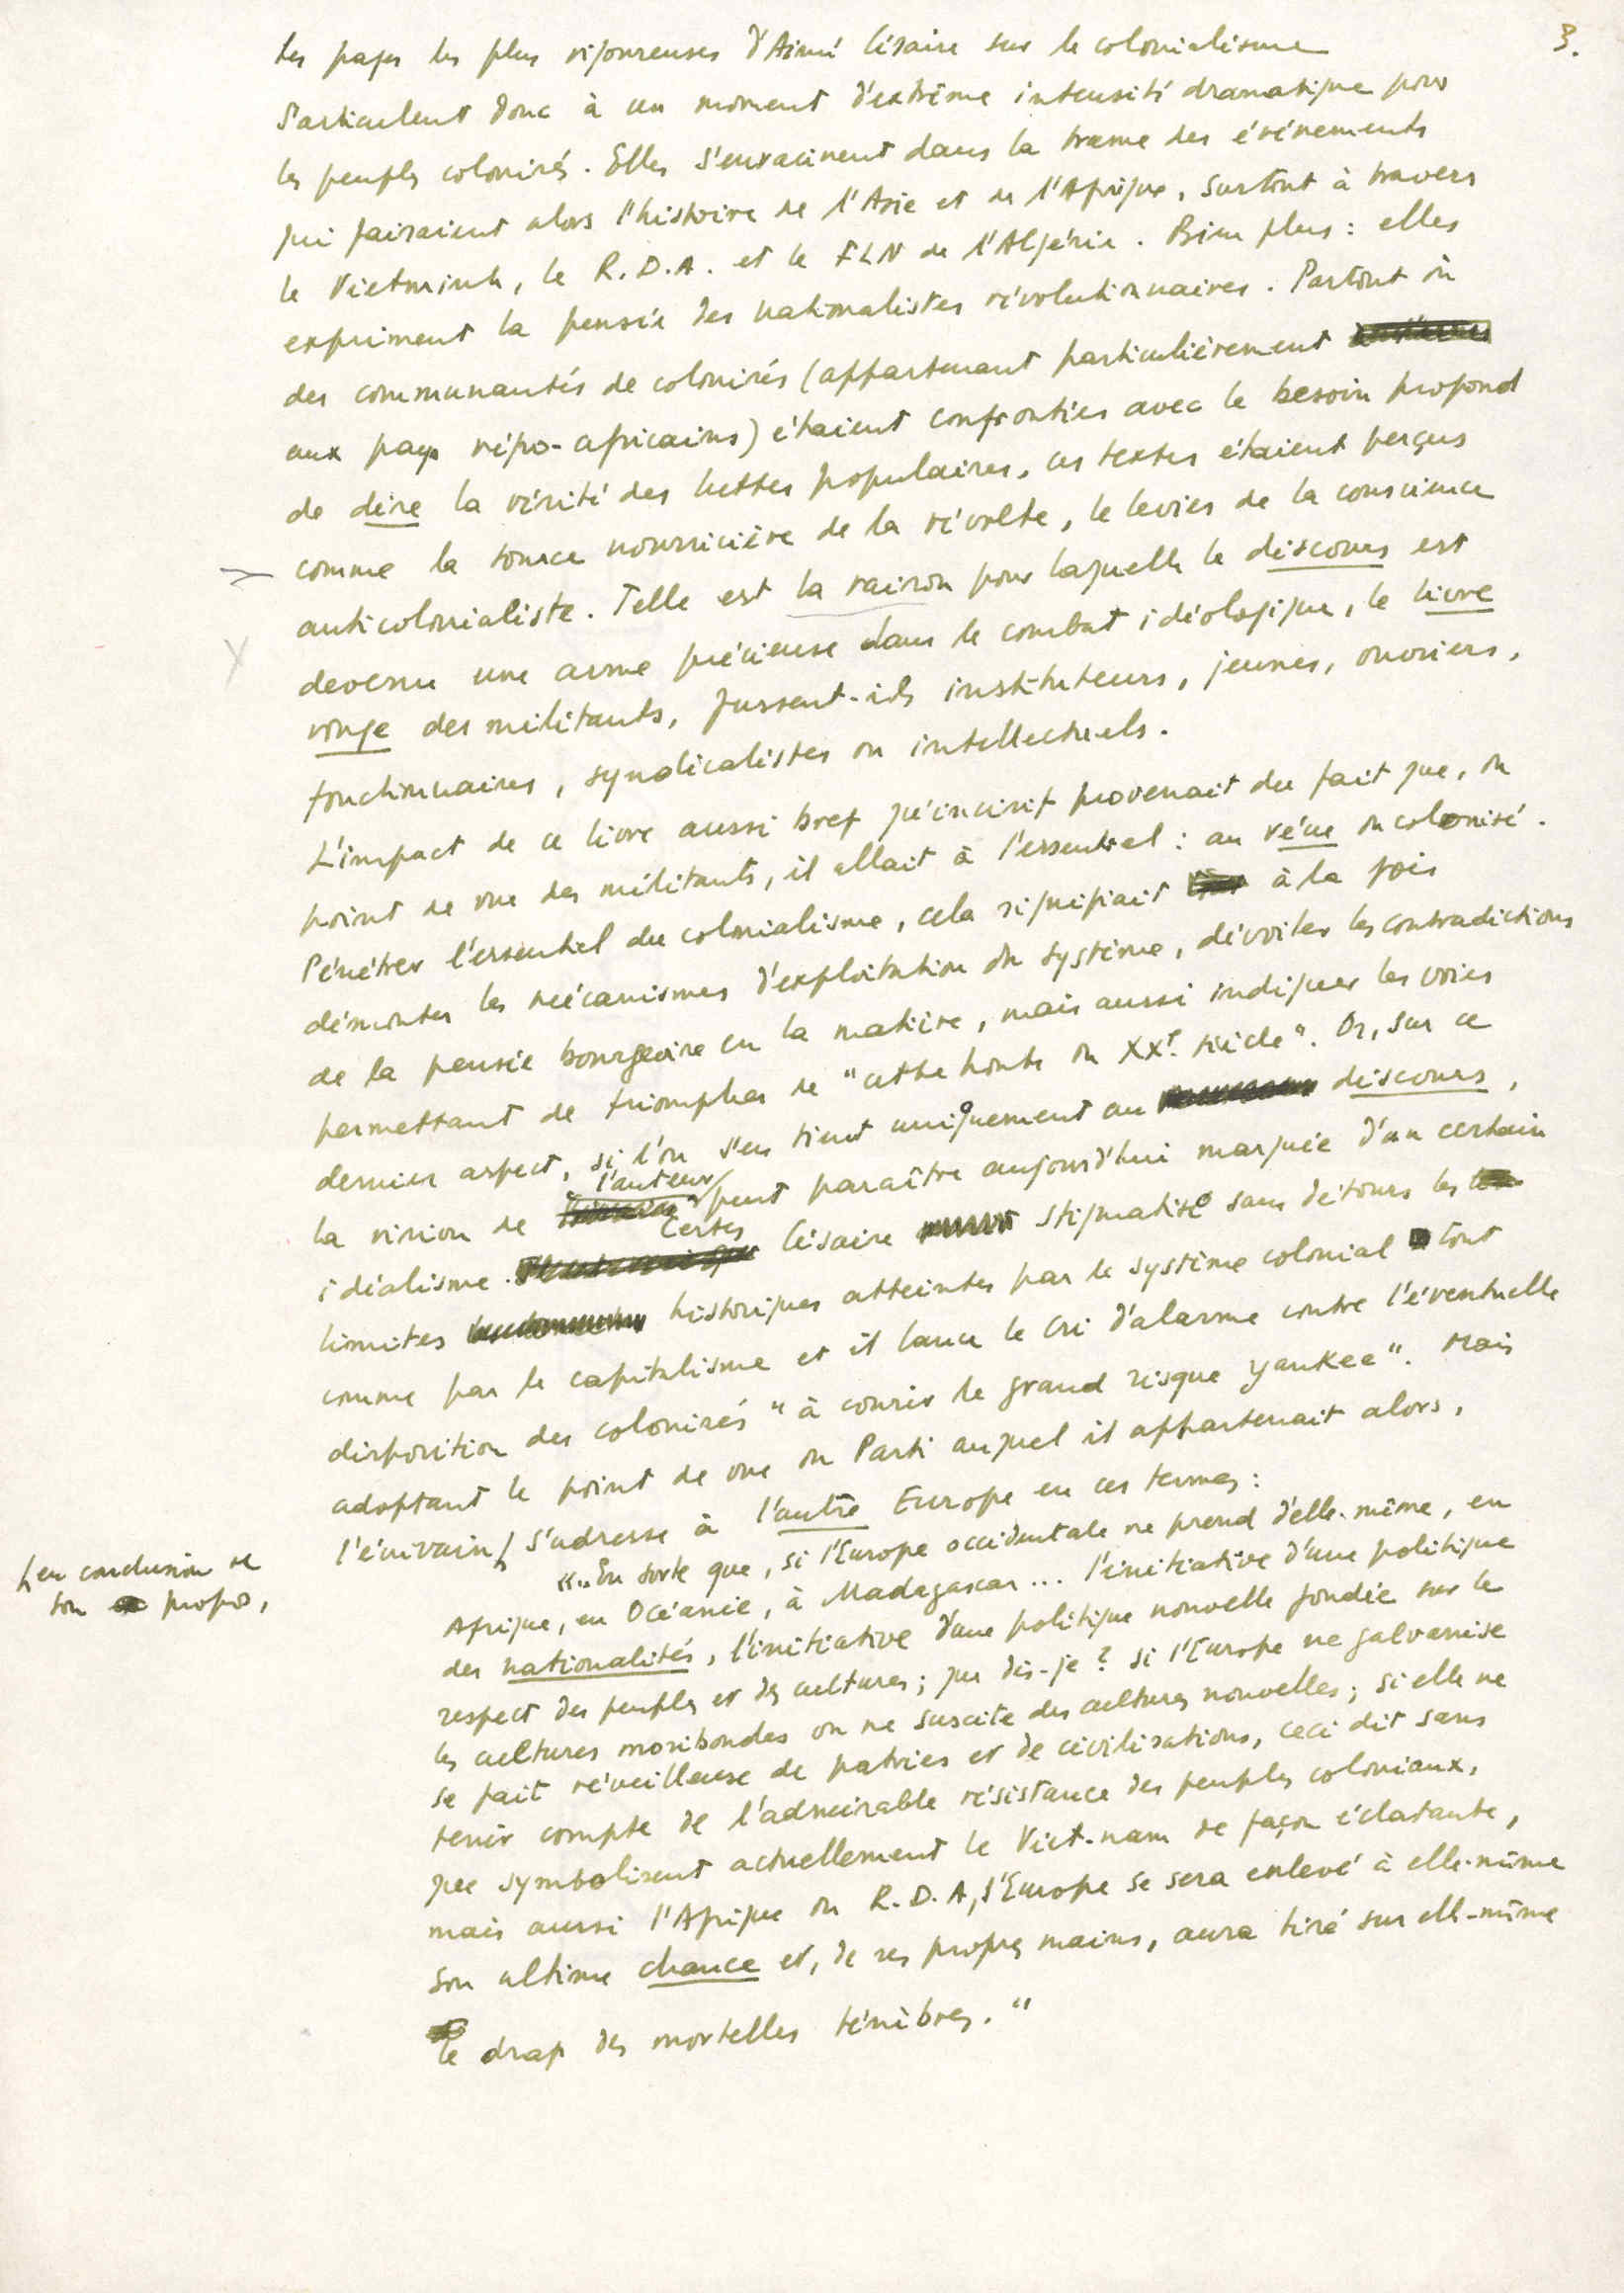 3.
Les pages les plus vigoureuses d'Aimé Césaire sur le colonialisme
s'articulent donc à un moment d'extrême intensité dramatique pour
les peuples colonisés. Elles s'enracinent dans la trame des événements
qui faisaient alors l'histoire de l'Asie et de l'Afrique, surtout à travers
le Vietminh, le R.D.A. et le FLN de l'Algérie. Bien plus : elles
expriment la pensée des nationalistes révolutionnaires. Partout où
des communautés de colonisés (appartenant particulièrement
aux pays négro-africains) étaient confrontées avec le besoin profond
de dire la vérité des luttes populaires, ces textes étaient perçus
comme la source nourricière de la révolte, le levier de la conscience
anticolonialiste. Telle est la raison pour laquelle le discours est
devenu une arme précieuse dans le combat idéologique, le livre
rouge des militants, fussent-ils instituteurs, jeunes, ouvriers,
fonctionnaires, syndicalistes ou intellectuels.
L'impact de ce livre aussi bref qu'incisif provenait du fait que, du
point de vue des militants, il allait à l'essentiel : au vécu du colonisé.
Pénétrer l'essentiel du colonialisme, cela signifiait à la fois
démonter les mécanismes d'exploitation du système, dévoiler les contradictions
de la pensée bourgeoise en la matière, mais aussi indiquer les voies
permettant de triompher de "cette honte du XXe. siècle". Or, sur ce
dernier aspect, si l'on s'en tient uniquement au discours,
la vision de l'auteur peut paraître aujourd'hui marquée d'un certain
idéalisme. Certes Césaire stigmatise sans détours les
limites historiques atteintes par le système colonial tout
comme par le capitalisme et il lance le cri d'alarme contre l'éventuelle
disposition des colonisés "à courir le grand risque yankee". Mais
adoptant le point de vue du Parti auquel il appartenait alors,
l'écrivain s'adresse à l'autre Europe en ces termes :
en conclusion de
son propos,
"...En sorte que, si l'Europe occidentale ne prend d'elle-même, en
Afrique, en Océanie, à Madagascar... l'initiative d'une politique
des nationalités, l'initiative d'une politique nouvelle fondée sur le
respect des peuples et des cultures ; que dis-je ? si l'Europe ne galvanise
les cultures moribondes ou ne suscite des cultures nouvelles ; si elle ne
se fait réveilleuse de patries et de civilisations, ceci dit sans
tenir compte de l'admirable résistance des peuples coloniaux,
que symbolisent actuellement le Viet-nam de façon éclatante,
mais aussi l'Afrique du R.D.A, l'Europe se sera enlevé à elle-même
son ultime chance et, de ses propres mains, aura tiré sur elle-même
le drap des mortelles ténèbres."